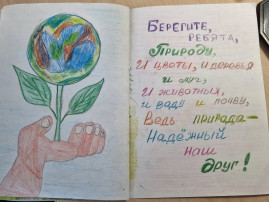 Берегите,
ребята,
Природу,
И цветы, и деревья
и луг,
И животных,
и воду и почву,
Ведь природа-
Надёжный
наш
друг!